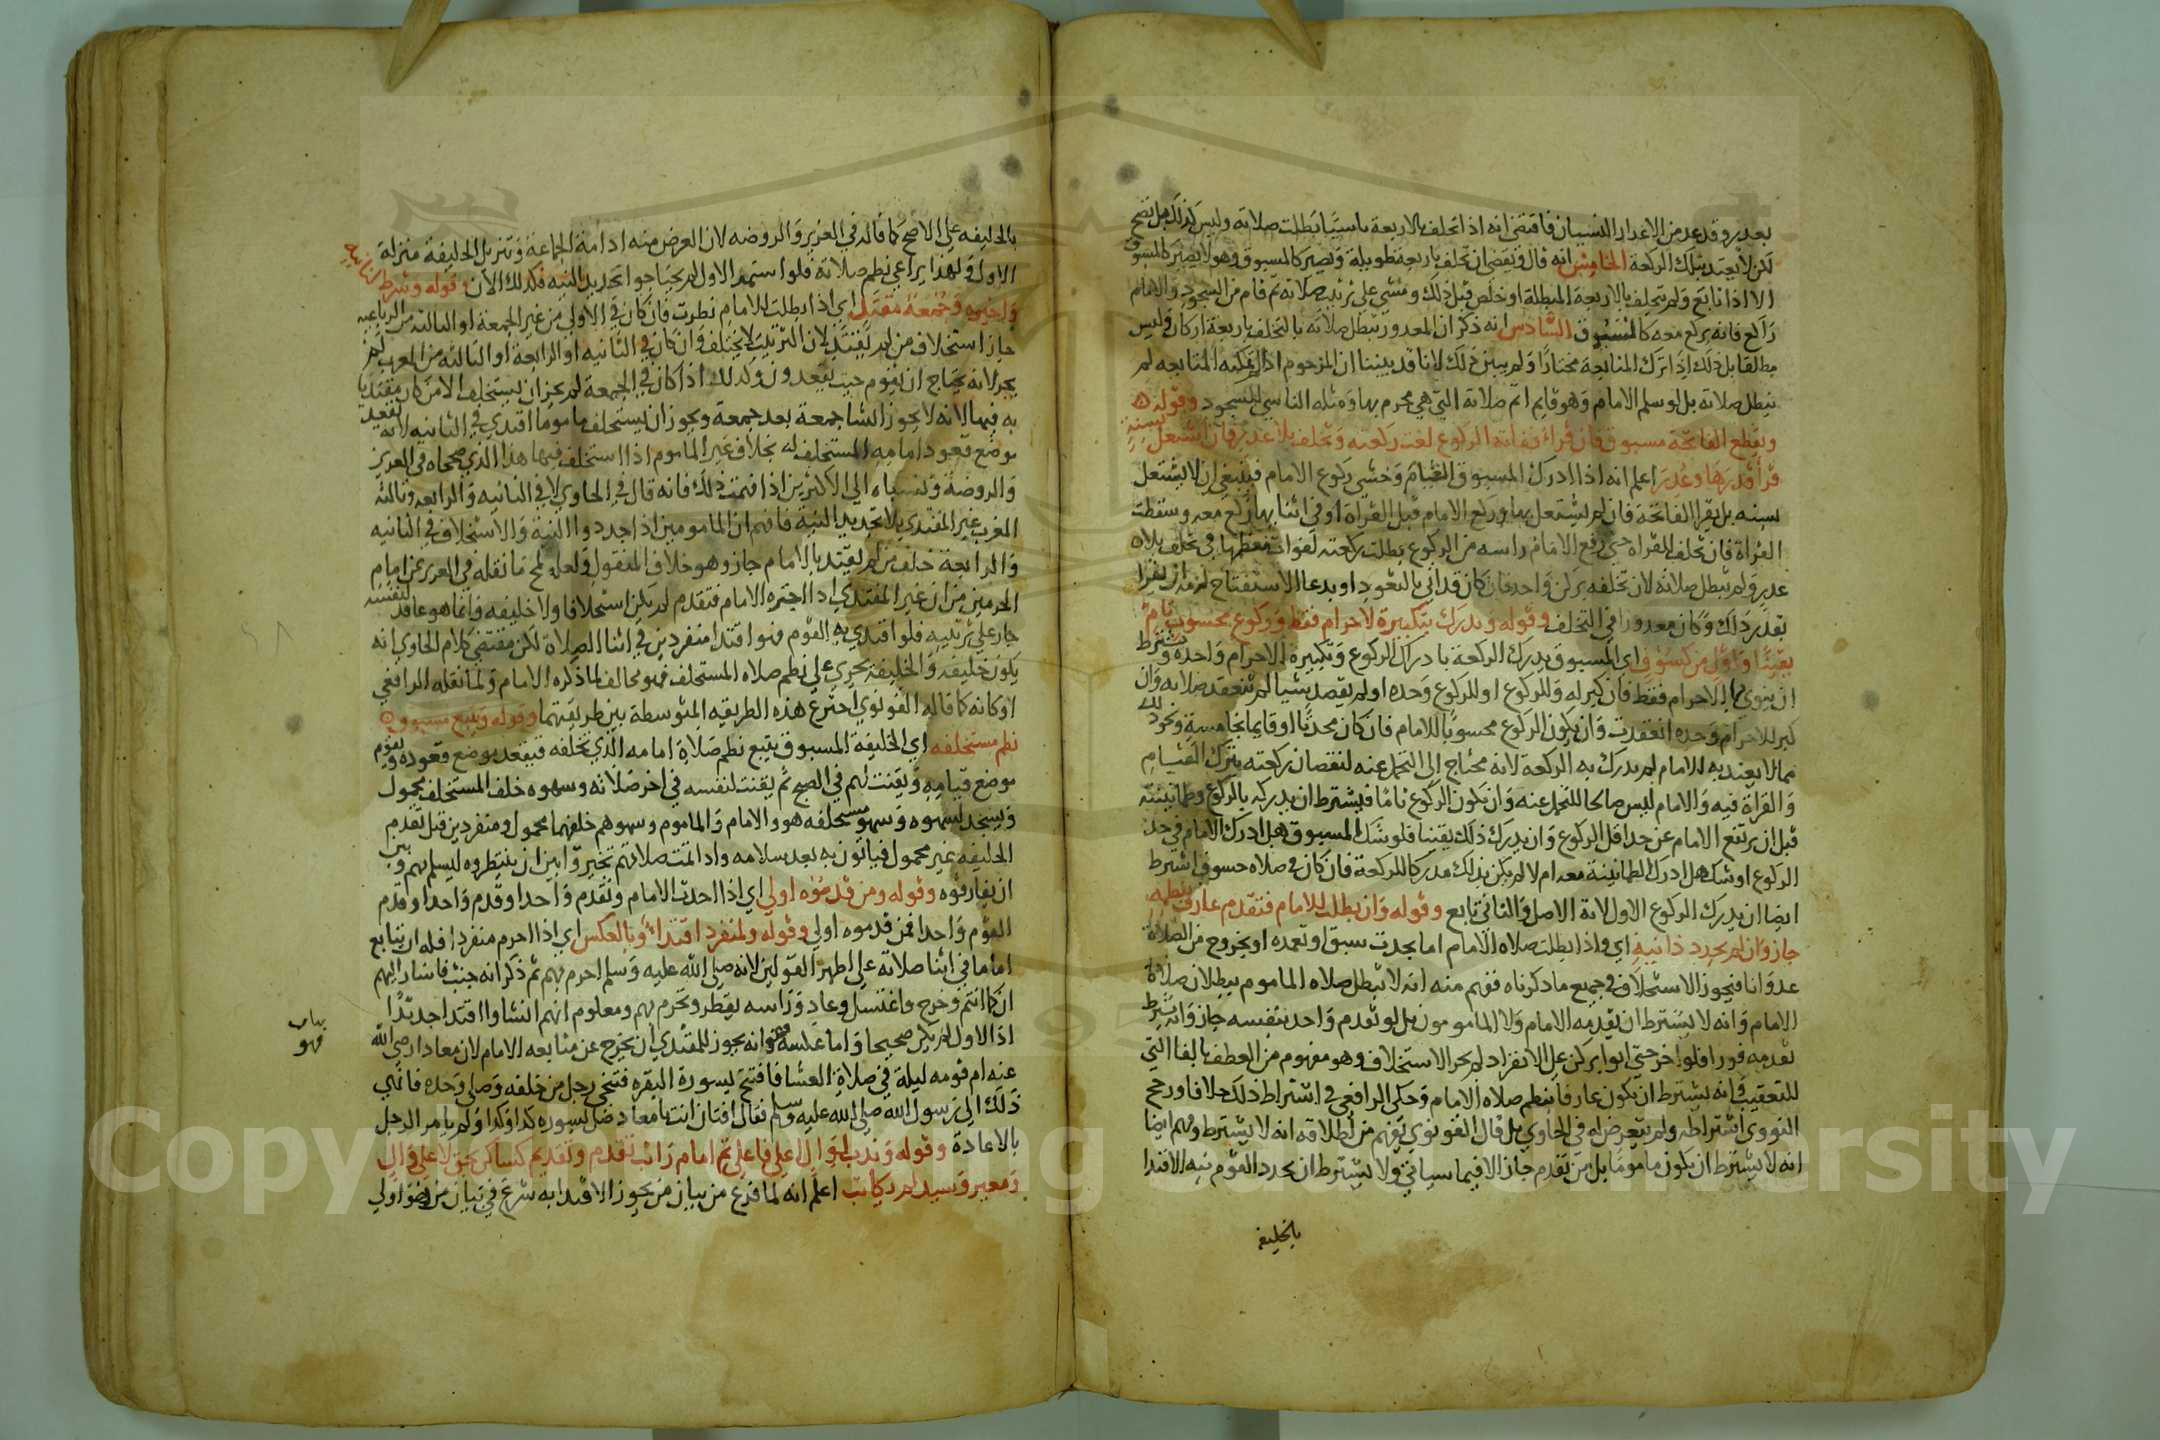 بعذر وقد عد من الاعذار النسيان فاقتضى انه اذا تخلف بالاربعة ناسيا بطلت صلاته وليس كذلك بل تصح
لكن لا يعتد بتلك الركعة الخامس انه قال وتقضي ان تخلف باربعة طويلة وتصير كالمسبوق وهو لا يصير كالمسبوق
الا اذا تابع ولم يتخلف بالاربعة المبطلة او خلص قبل ذلك ومشى على ترتيب صلاته ثم قام من السجود والامام
راكع فانه يركع معه كالمسبوق السادس انه ذكر ان المعذور تبطل صلاته بالتخلف باربعة اركان وليس
مطلقا بل ذلك اذا ترك المتابعة مختارا ولم يبين ذلك لانا قد بيننا ان المزحوم اذا لم يمكنه المتابعه لم
تبطل صلاته بل لو سلم الامام وهو قايم اتم صلاته التي هي محرم بها ومثله الناسي للسجود وقوله
ويقطع الفاتحة مسبوق فان قرا ففاته الركوع لغت ركعته وتخلف بلا عذر فان اشتغل بسنة
قرا قدرها وعذر اعلم انه اذا ادرك المسبوق القيام وخشي ركوع الامام فينبغي ان لا يشتغل
بسنه بل يقرا الفاتحة فان لم يشتغل بها وركع الامام قبل القراة او في اثنا بها ركع معه وسقطت
القراة فان تخلف للقراه حتى رفع الامام راسه من الركوع بطلت ركعته لفوات معظمها في تخلف بلا
عذر ولم تبطل صلاته لان تخلفه بركن واحد فان كان قد اتى بالتعوذ او بدعا الاستفتاح لزمه ان يقرا
بقدر ذلك وكان معذورا في التخلف وقوله ويدرك بتكبيرة لاحرام فقط وركوع محسوب تام
يقينا واول من كسوف اي المسبوق يدرك الركعة بادراك الركوع وتكبيرة الاحرام واحدة ويشترط
ان ينوي بها الاحرام فقط فان كبر له وللركوع او للركوع وحده او لم يقصد شيا لم تنعقد صلاته وان
كبر للاحرام وحده انعقدت وان يكون الركوع محسوبا للامام فان كان محدثا او قايما بخامسة ونحو ذلك
مما لا يعتد به للامام لم يدرك به الركعة لانه محتاج الى التحمل عنه لنقصان ركعته بترك القيام
والقراة فيه والامام ليس صالحا للتحمل عنه وان يكون الركوع تاما فيشترط ان يدركه بالركوع وطمانينته
قبل ان يرتفع الامام عن حد اقل الركوع وان يدرك ذلك يقينا فلو شك المسبوق هل ادرك الامام في حد
الركوع او شك هل ادرك الطمانينة معه ام لا لم يكن بذلك مدركا للركعة فان كان في صلاه خسوف اشترط
ايضا ان يدرك الركوع الاول لانه الاصل والثاني تابع وقوله وان بطلت للامام فتقدم عارف بنظمه
جاز وان لم يجدد ذا نية اي واذا بطلت صلاه الامام اما بحدث سبق او تعمده او بخروج من الصلاة
عدوانا فيجوز الاستخلاف في جميع ما ذكرناه ففهم منه انه لا تبطل صلاه الماموم ببطلان صلاة
الامام وانه لا يشترط ان يقدمه الامام ولا المامومون بل لو تقدم واحد بنفسه جاز وانه يشترط
تقدمه فورا فلو اخر حتى اتوا بركن على الانفراد لم يجز الاستخلاف وهو مفهوم من العطف بالفا التي
للتعقيب فانه يشترط ان يكون عارفا بنظم صلاه الامام وحكى الرافعي في اشتراط ذلك خلافا ورجح
النووي اشتراطه ولم يتعرض له في الحاوي بل قال القونوي يفهم من اطلاقه انه لا يشترط وفهم ايضا
انه لا يشترط ان يكون ماموما بل من تقدم جاز الا فيما سياتي ولا يشترط ان يجدد القوم نيه الاقتدا
بالخليفه
بالخليفه على الاصح كما قاله في العزيز والروضه لان الغرض منه ادامة الجماعة وتنزيل الخليفة منزلة
الاول ولهذا يراعي نظم صلاته فلو استمر الاول لم يحتاجوا تجديد النيه فكذلك الان وقوله وشرط لثانية
واخيرة وجمعة مقتد اي اذا بطلت للامام نظرت فان كان في الاولى من غير الجمعة او الثالثه من الرباعيه
جاز استخلاف من لم يقتد لان الترتيب لا يختلف وان كان في الثانيه او الرابعة او الثالثه من المغرب لم
يجز لانه يحتاج ان يقوم حيث يقعدون وكذلك اذا كان في الجمعة لم يجز ان يستخلف الا من كان مقتديا
به فيها لانه لا يجوز انشا جمعة بعد جمعة ويجوز ان يستخلف ماموما اقتدى في الثانيه لانه يقعد
موضع قعود امامه المستخلف له بخلاف غير الماموم اذا استخلف فيها هذا الذي صححاه في العزيز
والروضة ونسباه الى الاكثرين اذا فهمت ذلك فانه قال في الحاوي لا في الثانيه والرابعه وثالثه
المغرب غير المقتدي بلا تجديد النية فافهم ان المامومين اذا جددوا النية والاستخلاف في الثانيه
والرابعة خلف من لم يقتد بالامام جاز وهو خلاف المنقول ولعله لمح ما نقله في العزيز عن امام
الحرمين من ان غير المقتدي اذا اختره الامام فتقدم لم يكن استخلافا ولا خليفه وانما هو عاقد لنفسه
جار على ترتيبه فلو اقتدى به القوم فهو اقتدا منفردين في اثنا الصلاة لكن مقتضى كلام الحاوي انه
يكون خليفه والخليفة يجري على نظم صلاه المستخلف فهو مخالف لما ذكره الامام ولما نقله الرافعي
او كانه كما قاله القونوي اخترع هذه الطريقه المتوسطة بين طريقتهما وقوله ويتبع مسبوق
نظم مستخلفه اي الخليفة المسبوق يتبع نظم صلاة امامه الذي تخلفه فيقعد موضع قعوده ويقوم
موضع قيامه ويقنت لهم في الصبح ثم يقنت لنفسه في اخر صلاته وسهوه خلف المستخلف محمول
ويسجد لسهوه وسهو مستخلفه هو والامام والماموم وسهوهم خلفهما محمول ومنفردين قبل تقدم
الخليفه غير محمول فياتون به بعد سلامه واذا تمت صلاتهم تخيروا بين ان ينتظروه ليسلم بهم وبين
ان يفارقوه وقوله ومن قدموه اولى اي اذا احدث الامام وتقدم واحد او قدم واحدا وقدم
القوم واحدا فمن قدموه اولى وقوله ولمنفرد اقتدا وبالعكس اي اذا احرم منفردا فله ان يتابع
اماما في اثنا صلاته على اظهر القولين لانه صلى الله عليه وسلم احرم بهم ثم ذكر انه جنب فاشار اليهم
ان كما انتم وخرج واغتسل وعاد وراسه يقطر وتحرم بهم ومعلوم انهم انشاوا اقتدا جديدا
اذ الاول لم يكن صحيحا واما عكسه فهو انه يجوز للمقتدي ان يخرج عن متابعه الامام لان معاذا رضي الله
عنه ام قومه ليلة في صلاة العشا فافتتح بسورة البقره فتنحى رجل من خلفه وصلى وحده فانهى
ذلك الى رسول الله صلى الله عليه وسلم فقال افتان انت يا معاذ صل بسورة كذا وكذا ولم يامر الرجل
بالاعادة وقوله وندب لوال اعلى فاعلى ثم امام راتب تقدم وتقديم كساكن بحق لا على وال
ومعير وسيد لم يكاتب اعلم انه لما فرغ من بيان من يجوز الاقتدا به شرع في بيان من هو اولى
بيان
فهو
Copy
ersity